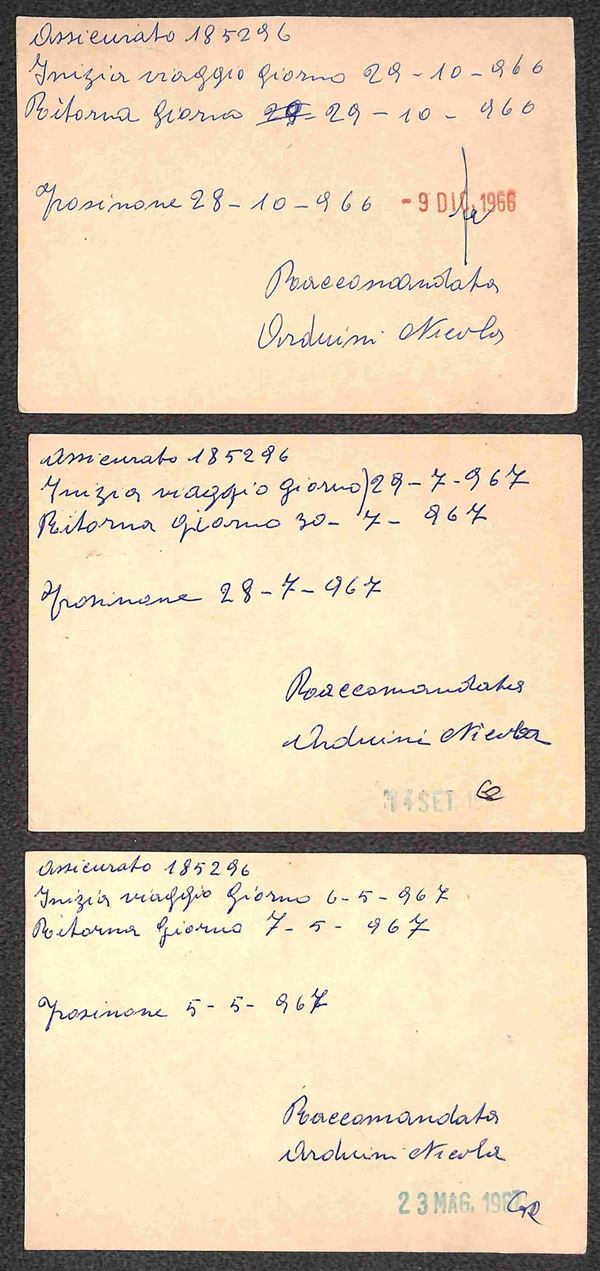 Assicurato 185296
Inizia viaggio giorno 29-10-966
Ritorna giorno 29 29-10-966
Frosinone 28-10-966
-9 DIC. 1966
Raccomandata
Arduini Nicola
Assicurato 185296
Inizia viaggio giorno) 29-7-967
Ritorna giorno 30-7-967
Frosinone 28-7-967
Raccomandata
Arduini Nicola
14 SET. 1
Assicurato 185296
Inizia viaggio giorno 6-5-967
Ritorna giorno 7-5-967
Frosinone 5-5-967
Raccomandata
Arduini Nicola
23 MAG. 196